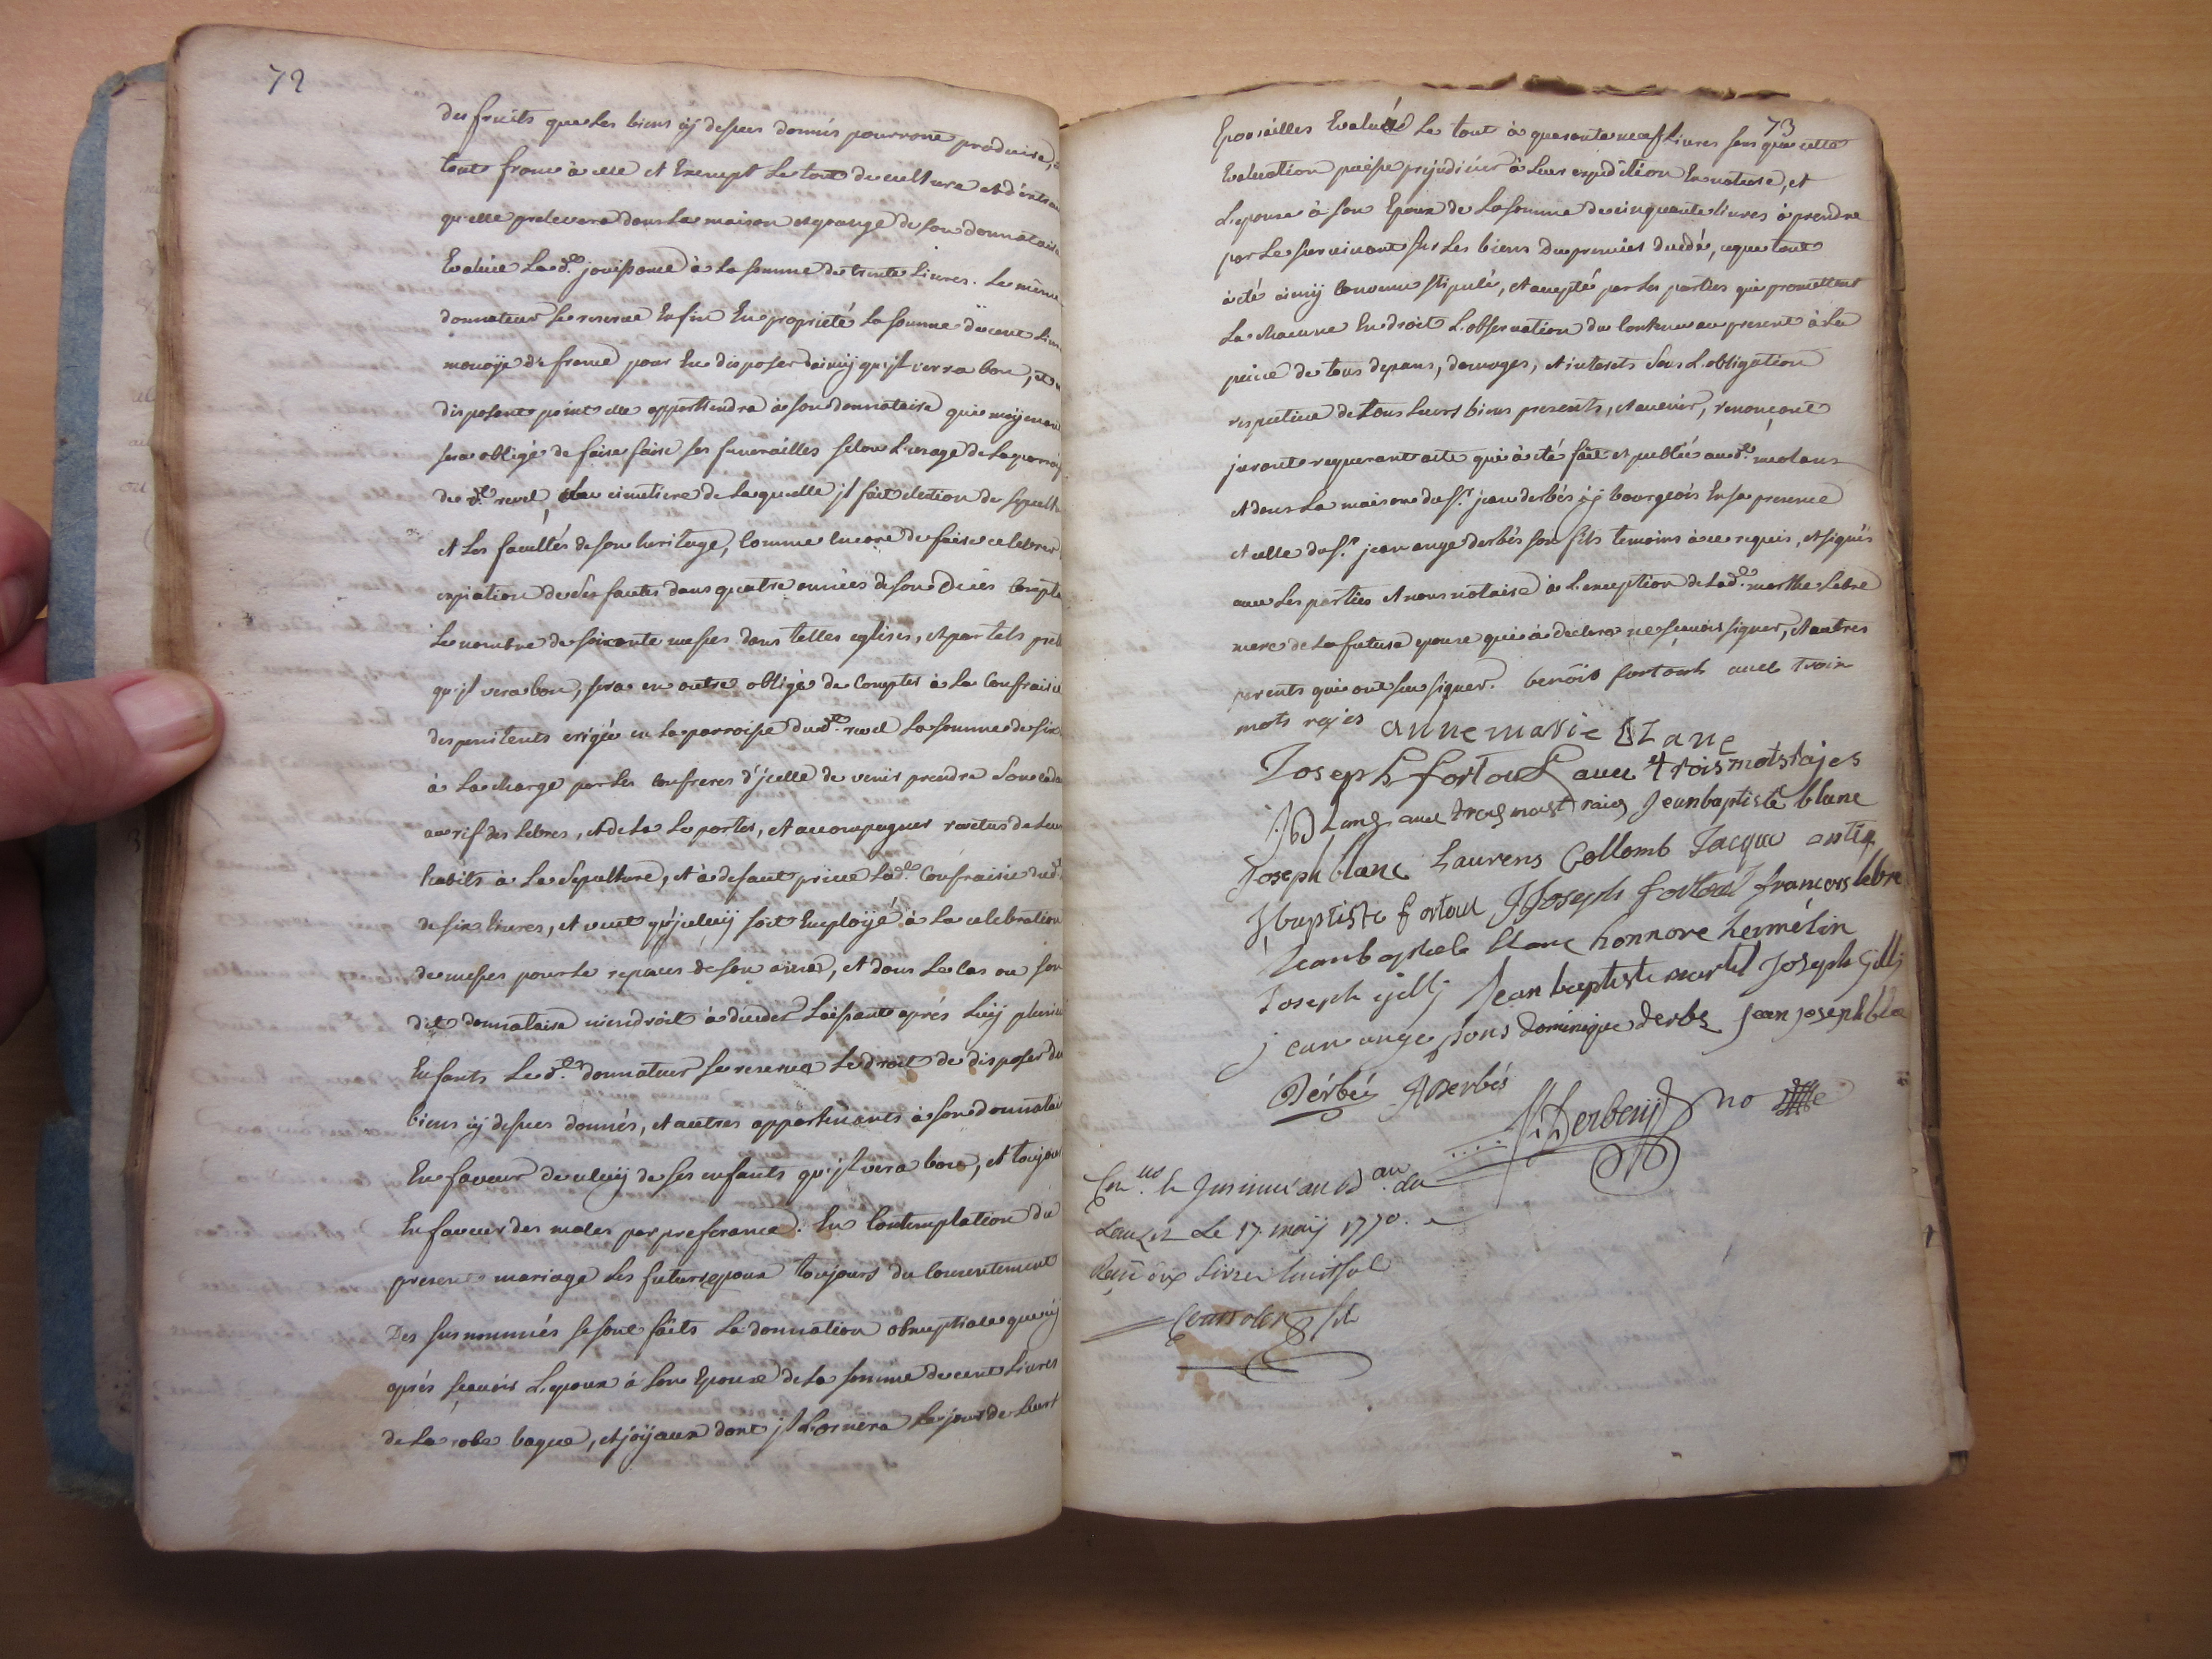 72
des fruits que les biens cÿ dessus donnés pourront produire,
tout franc à elle et Exempt le tout de culture et d'entrau
qu'elle prelevera dans la maison et grange de son donnataire
Evaluée la d.e jouissance à la somme de trente Livres. Le même
donnateur se reserve Enfin En propriété la somme de cent Livr
monoÿe de france pour En disposer dainsÿ qu'jl verra bon, et n
disposant point elle appartiendra à son donnataire qui moÿenant
sera obligé de faire faire ses funerailles selon L'usage de la parroiss
du d.t revel, au cimetiere de laquelle jl fait election de sepultu
et les facultés de son heritage, comme Encore de faire celebrer
expiation de ses fautes dans quatre années de son Decés Compta
Le nombre de soixante messes dans telles eglises, et par tels pret
qu'jl vera bon, sera en outre obligé de Compter à la Confrairie
des penitents erigée en la parroisse dud.t revel la somme de six
à la charge par les confreres d'jcelle de venir prendre son cada
au rif des Lebres, et de la le porter, et accompagner revetus de leur
habits à la sepulture, et à defaut prive lad.e Confrairie dud.t
de six livres, et veut qu'jceluÿ soit Emploÿé à la celebration
de messes pour le repaus de son ame, et dans le cas ou son
dit donnataire viendroit à deceder Laissant aprés luÿ plusieu
Enfants Le d.t donnateur se reserve le droit de disposer du
biens cÿ dessus donnés, et autres appartenants à son donnatai
En faveur de celuÿ de ses enfants qu'jl vera bon, et toujour
En faveur des males par preferance. En Contemplation du
present mariage les futurs epoux toujours du Consentement
Des susnommés se sont faits la donnation obnuptiale que cÿ
aprés sçavoir L'epoux à son Epouse de la somme de cent Livres
de la robe bague, et joÿaux dont jl L'ornera le jour de leurs
73
Epousailles Evalués Le tout à quarante neuf Livres sans que cette
Evaluation puisse prejudicier à leur expedition En nature, et
L'epouse à son Epoux de la somme de cinquante livres à prendre
par le survivant sur les biens du premier decedé, ce que tout
à été ainsÿ Convenu stipulé, et accepté par les parties qui promettent
La chacune En droit L'observation du Contenu au present à la
peine de tous depans, domages, et interets sous L'obligation
respective de tous leurs biens presents, et avenir, renonçant
jurant requerant acte qui à été fait et publié aud.t meolans
et dans la maison du s.r jean derbés cÿ bourgeois En sa presence
et celle du s.r jean ange derbés son fils temoins à ce requis, et signés
avec les parties et nous notaire à L'exception de lad.e marthe Lebre
mere de la future epouse qui à declaré ne sçavoir signer, et autres
parents qui ont sçu signer. benois fortoul avec trois
mots rajes anne marie blanc
Joseph fortoul avec trois mots rajes
JB Lans avec trois mast raies Jean baptiste blanc
Joseph blanc Laurens Collomb Jacque
J baptiste fortoul J Joseph fortoul francois lebre
Jean bastiste blanc honnore hermélin
Joseph gilly Jean baptiste martel Joseph Gilly
jean ange pons dominique derbes Jean joseph bla
Dérbés ADerbés
Derbesy no
Con.us et Insinué au B.au du
Lauzet Le 17. maÿ 1770.
Reçu livres huit sol